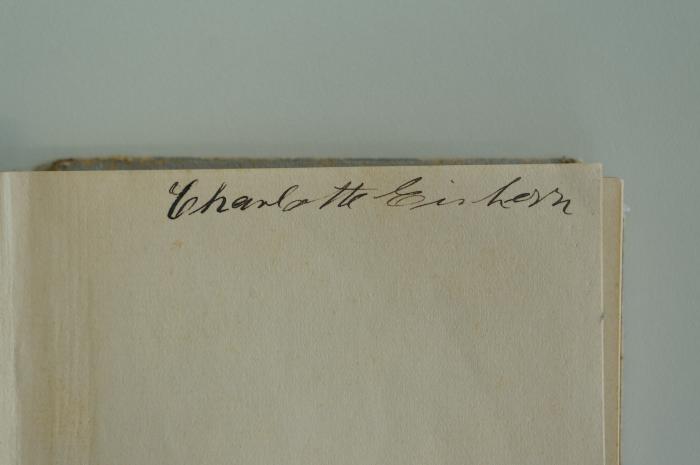 Charlotte Eishorn